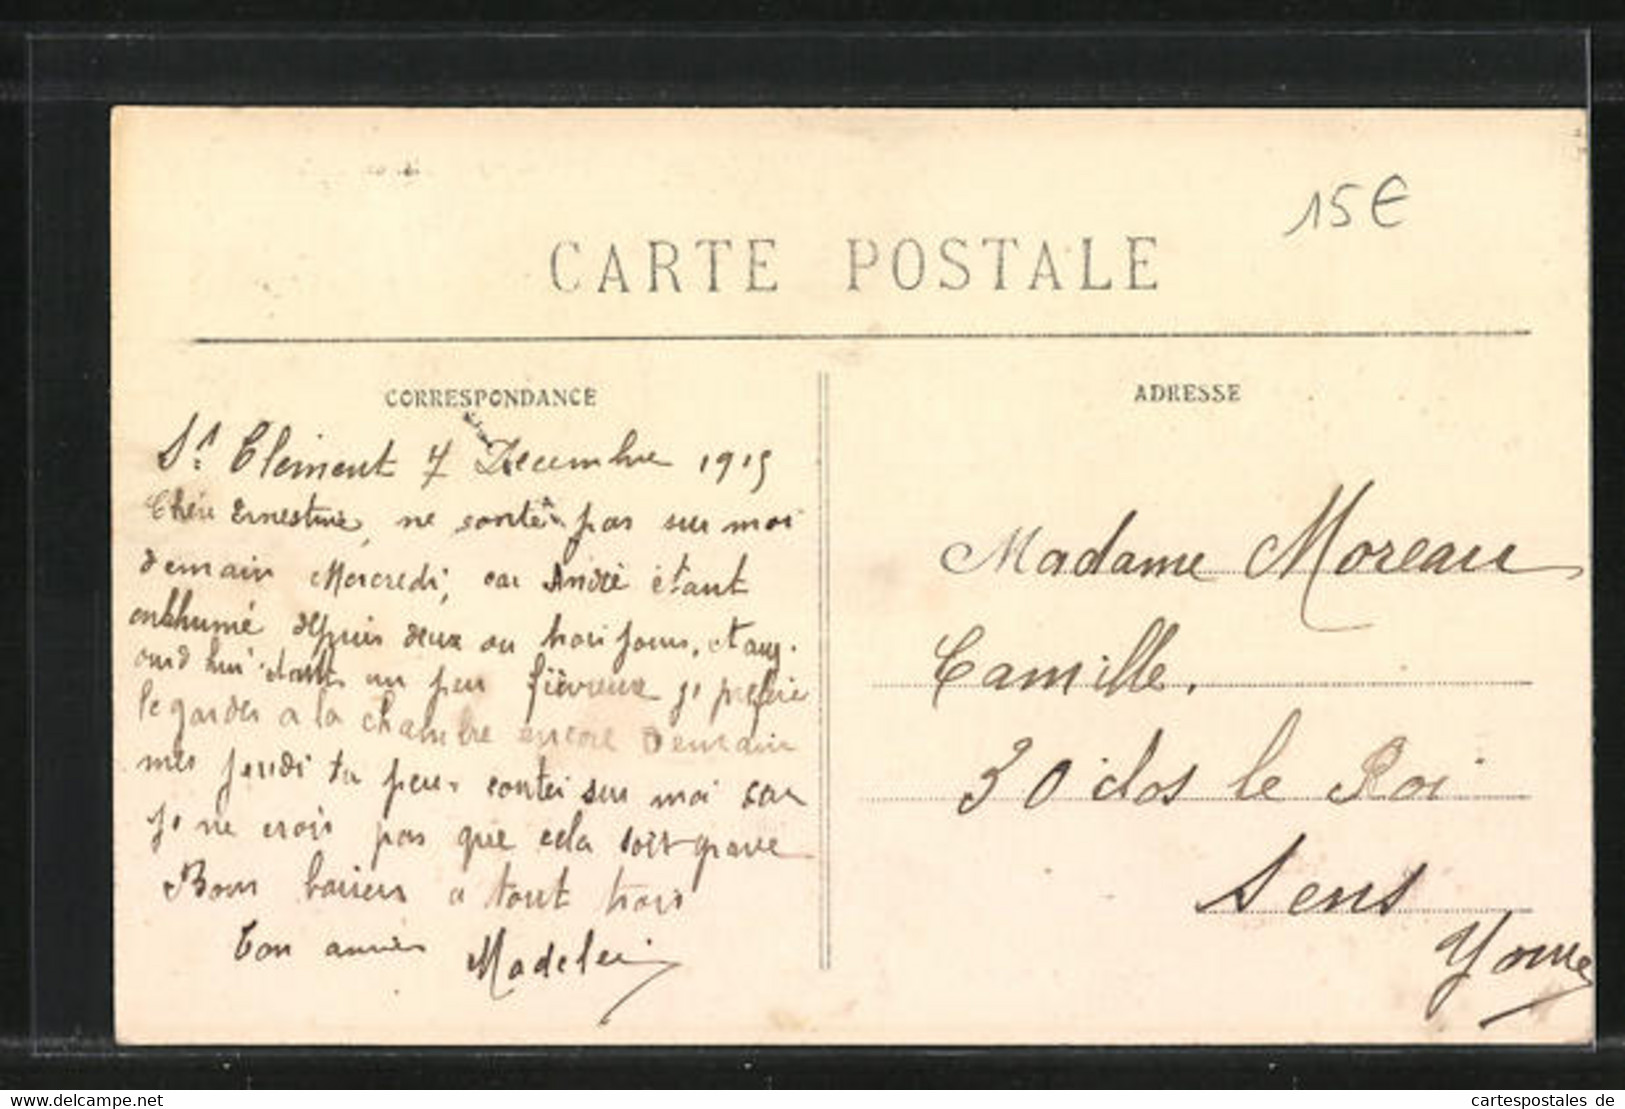 15€
CARTE POSTALE
CORRESPONDANCE
St Clément 7 Decembre 1915
Chère Ernestine, ne conte pas sur moi
demain Mercredi, car André étant
enrhumé depuis deux ou trois jours, et auj-
ourd'hui étant un peu fièvreux je prefère
le garder a la chambre encore demain
mes jeudi tu peux contei sur moi car
je ne crois pas que cela soit grave
Bons baisers a tout trois
Ton amie Madelein
ADRESSE
Madame Moreau
Camille,
30 clos le Roi
Sens
Yonne
www.cartespostales.de
cartespostales de